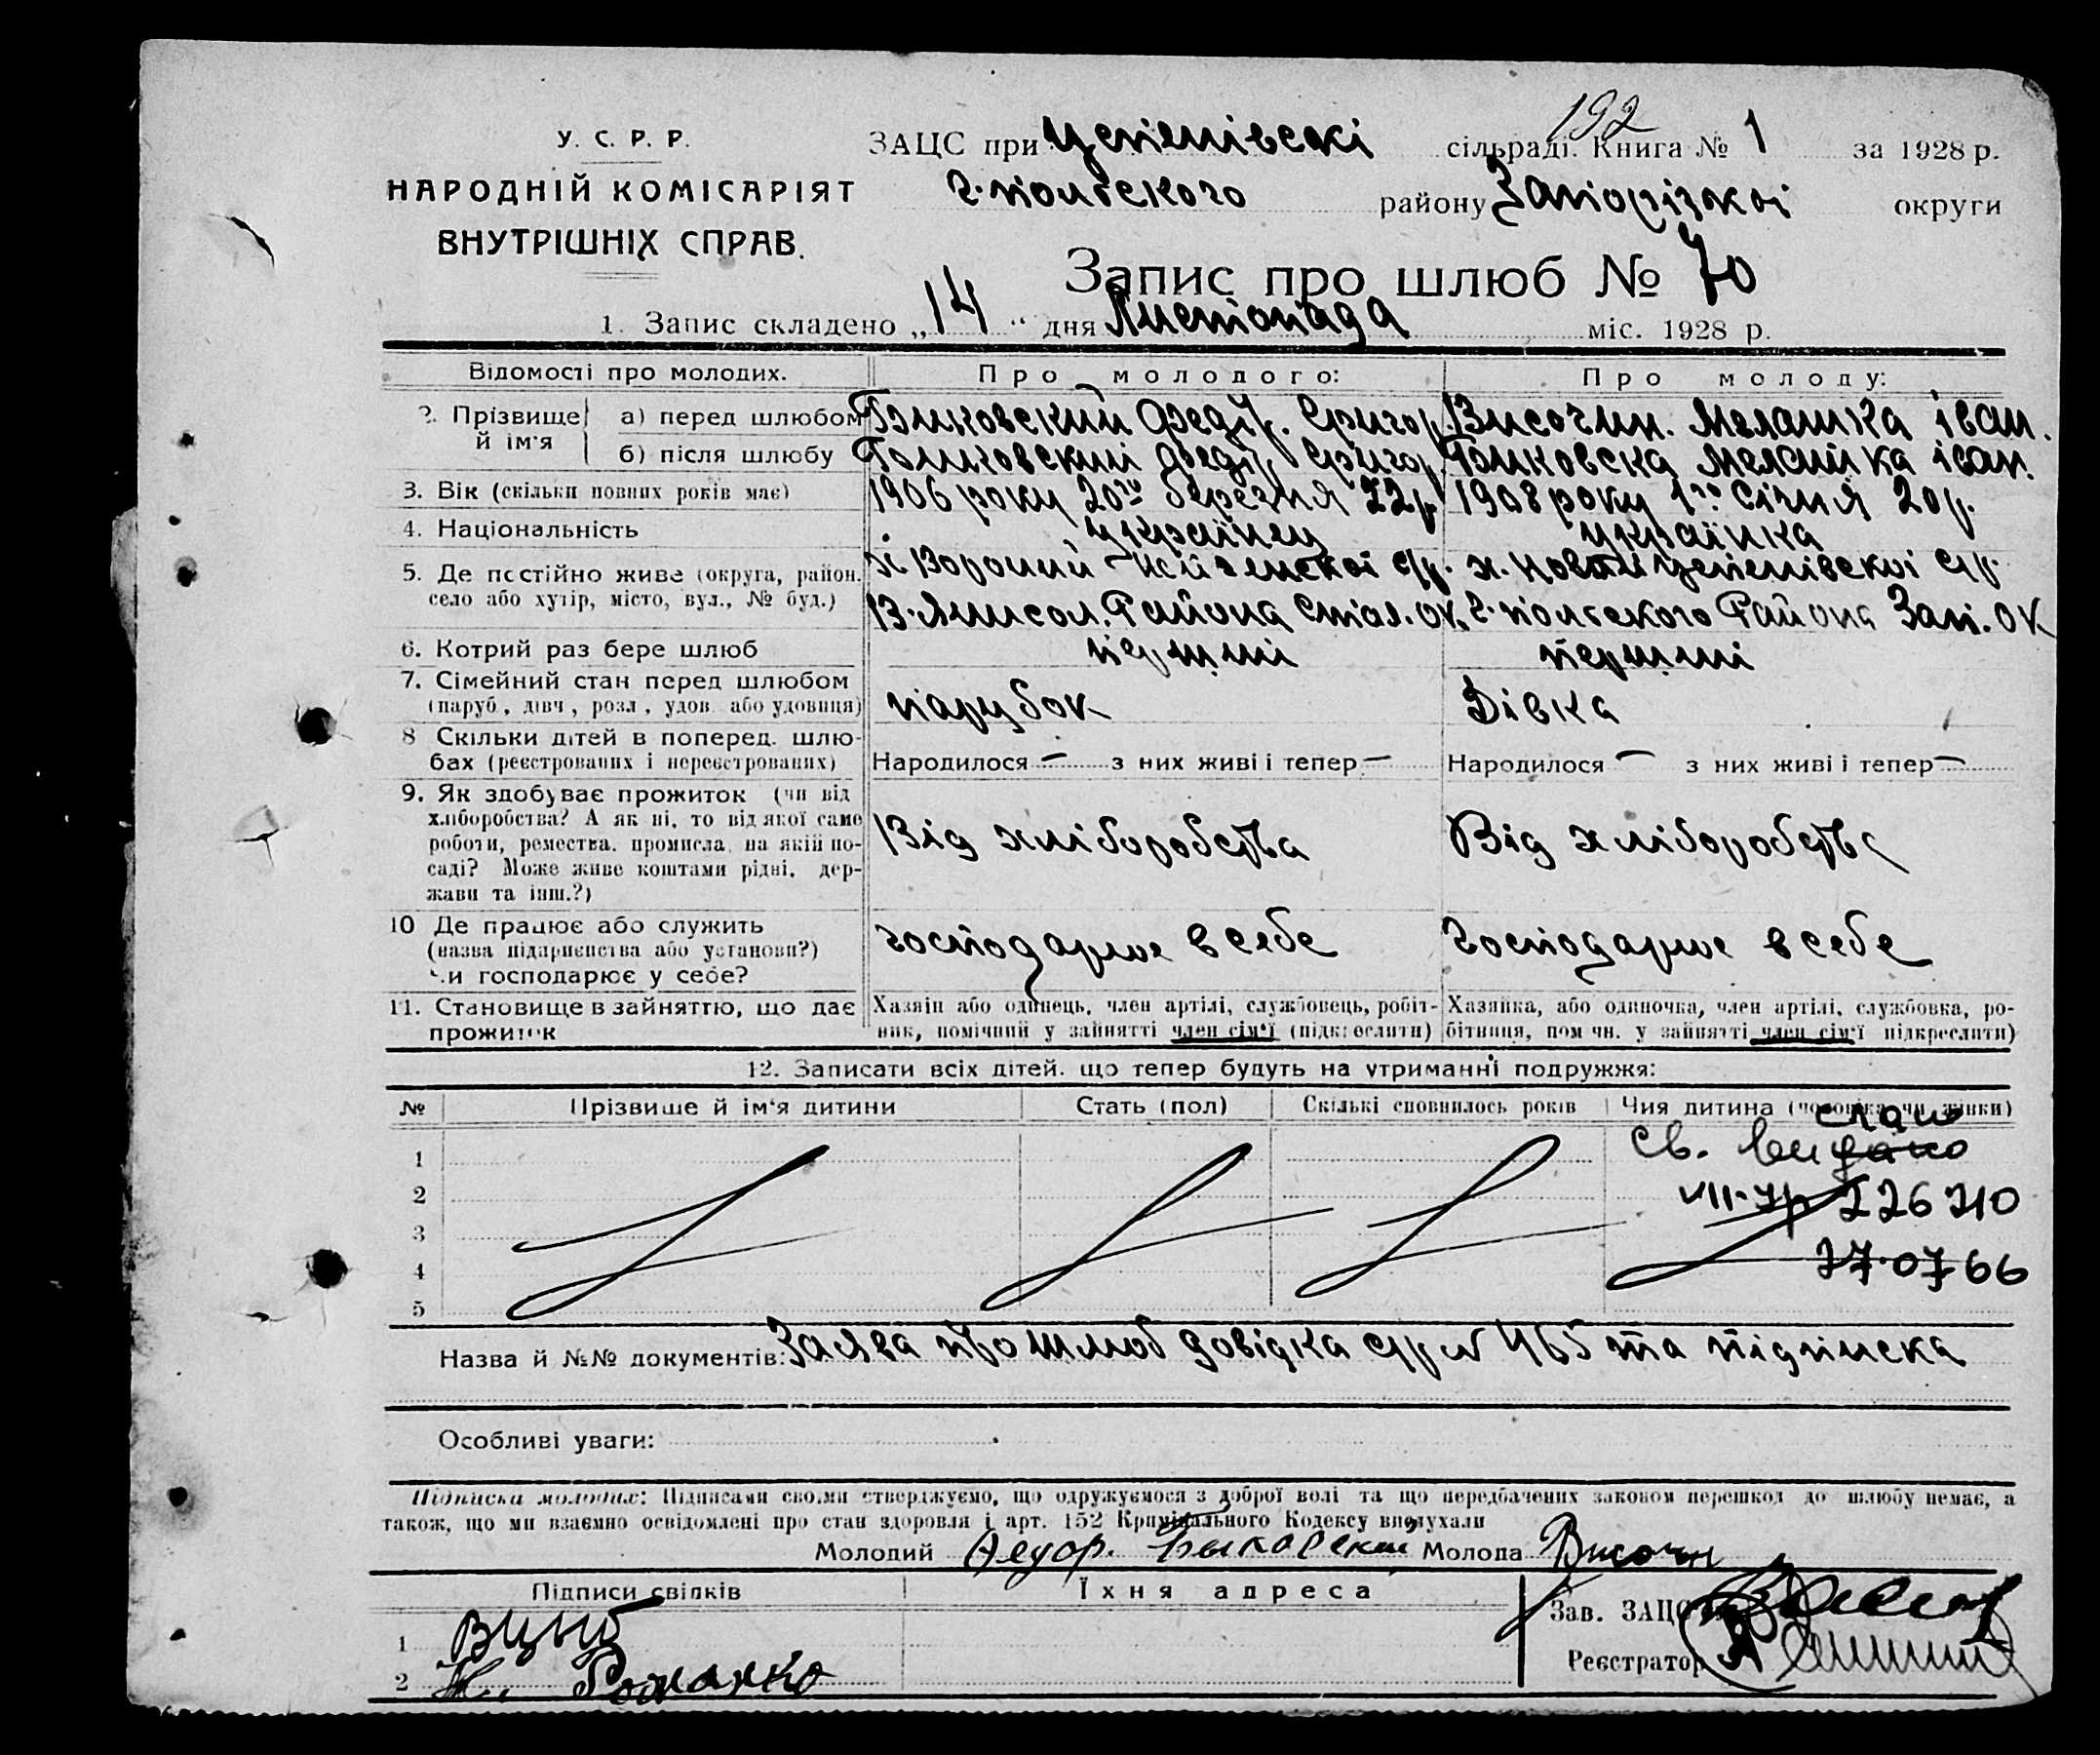 192
У. С. Р. Р.
НАРОДНІЙ КОМІСАРІЯТ
ВНУТРІШНІХ СПРАВ.
ЗАЦС при сільраді. Книга № 1 за 1928 р.
г. польського району Запорізкої округи
Запис про шлюб № 70
1. Запис складено „14“ дня Листопада міс. 1928 р.
Відомості про молодих. Про молодого: Про молоду:
2. Прізвище й ім'я а) перед шлюбом Височин. Мелашка іван.
б) після шлюбу Мелашка іван.
3. Вік (скільки повних років має) 1906 року 20го березня 22 р. 1908 року 1го Січня 20 р.
4. Національність українец українка
5. Де постійно живе (округа, район, село або хутір, місто, вул., № буд.)
г. польського Района Зап. ок
6. Котрий раз бере шлюб перший перший
7. Сімейний стан перед шлюбом парубок Дівка
(паруб., дівч., розл., удов. або удовиця)
8 Скільки дітей в поперед. шлюбах (реєстрованих і нереєстрованих) Народилося — з них живі і тепер — Народилося — з них живі і тепер —
9. Як здобуває прожиток (чи від хліборобства? А як ні, то від якої саме роботи, ремества, промисла, на якій посаді? Може живе коштами рідні, держави та інш.?) Від хліборобства Від хліборобства
10 Де працює або служить (назва підприємства або установи?) чи господарює у себе? господарює в себе Господарює в себе
11. Становище в зайняттю, що дає прожиток
Хазяїн або одинець, член артілі, службовець, робітник, помічний у зайнятті член сім'ї (підкреслити)
Хазяйка, або одиночка, член артілі, службовка, робітниця, помічн. у зайнятті член сім'ї підкреслити)
12. Записати всіх дітей, що тепер будуть на утриманні подружжя:
№ Прізвище й ім'я дитини Стать (пол) Скількі сповнилось років Чия дитина (чоловіка чи жінки)
1
2
3
4
5
Св. видано
226710
27.07 66
Назва й №№ документів: Заява про шлюб довідка с/р № 465 та підписка
Особливі уваги:
Підписка молодих: Підписами своїми стверджуємо, що одружуємося з доброї волі та що передбачених законом перешкод до шлюбу немає, а
також, що ми взаємно освідомлені про стан здоровля і арт. 152 Кримінального Кодексу вислухали
Молодий Молода Височин
Підписи свідків Їхня адреса
1 Зав. ЗАЦС
2 Романко Реєстратор